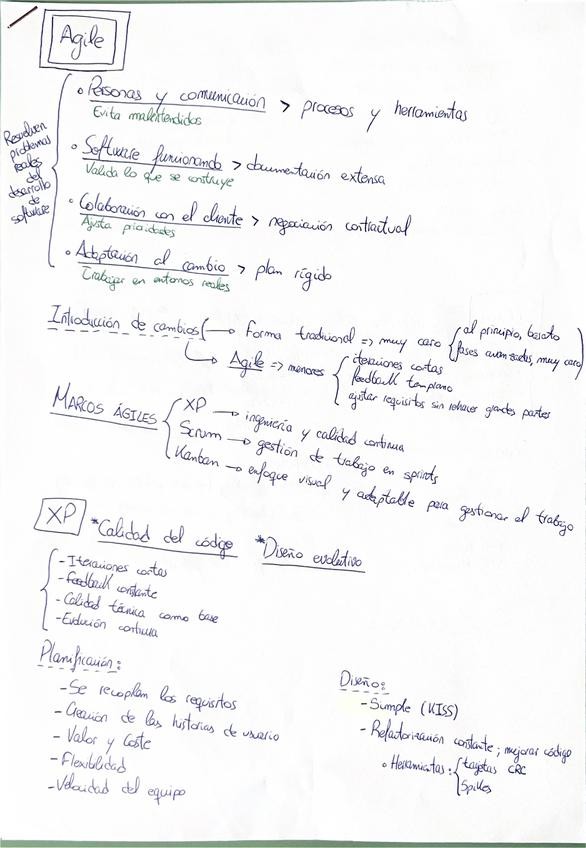 Agile
Resuelven problemas reales del desarrollo de software
• Personas y comunicación > procesos y herramientas
Evita malentendidos
• Software funcionando > documentación extensa
Valida lo que se construye
• Colaboración con el cliente > negociación contractual
Ajusta prioridades
• Adaptación al cambio > plan rígido
Trabajar en entornos reales
Introducción de cambios { → Forma tradicional => muy caro { al principio, barato
fases avanzadas, muy caro
→ Agile => menores { iteraciones cortas
feedback temprano
ajustar requisitos sin rehacer grandes partes
MARCOS ÁGILES { XP → ingeniería y calidad continua
Scrum → gestión de trabajo en sprints
Kanban → enfoque visual y adaptable para gestionar el trabajo
XP *Calidad del código *Diseño evolutivo
- Iteraciones cortas
- feedback constante
- Calidad técnica como base
- Evolución continua
Planificación:
- Se recopilan los requisitos
- Creación de las historias de usuario
- Valor y Coste
- Flexibilidad
- Velocidad del equipo
Diseño:
- Simple (KISS)
- Refactorización constante; mejorar código
• Herramientas: { tarjetas CRC
Spikes